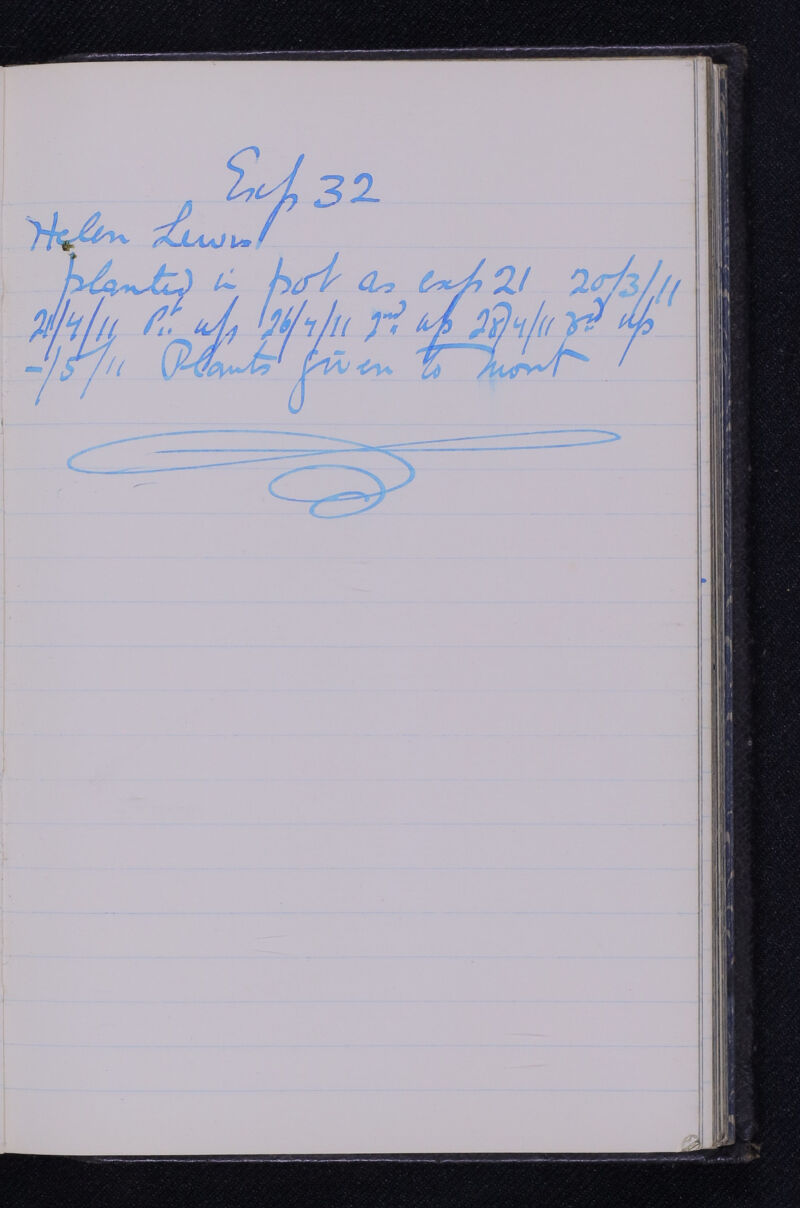 Exp 32
Helen Lewis
planted in pot as exp 21 20/3/11
21/4/11 up 26/4/11 2nd up 28/4/11 3rd up
-/5/11 Plants given to Mont